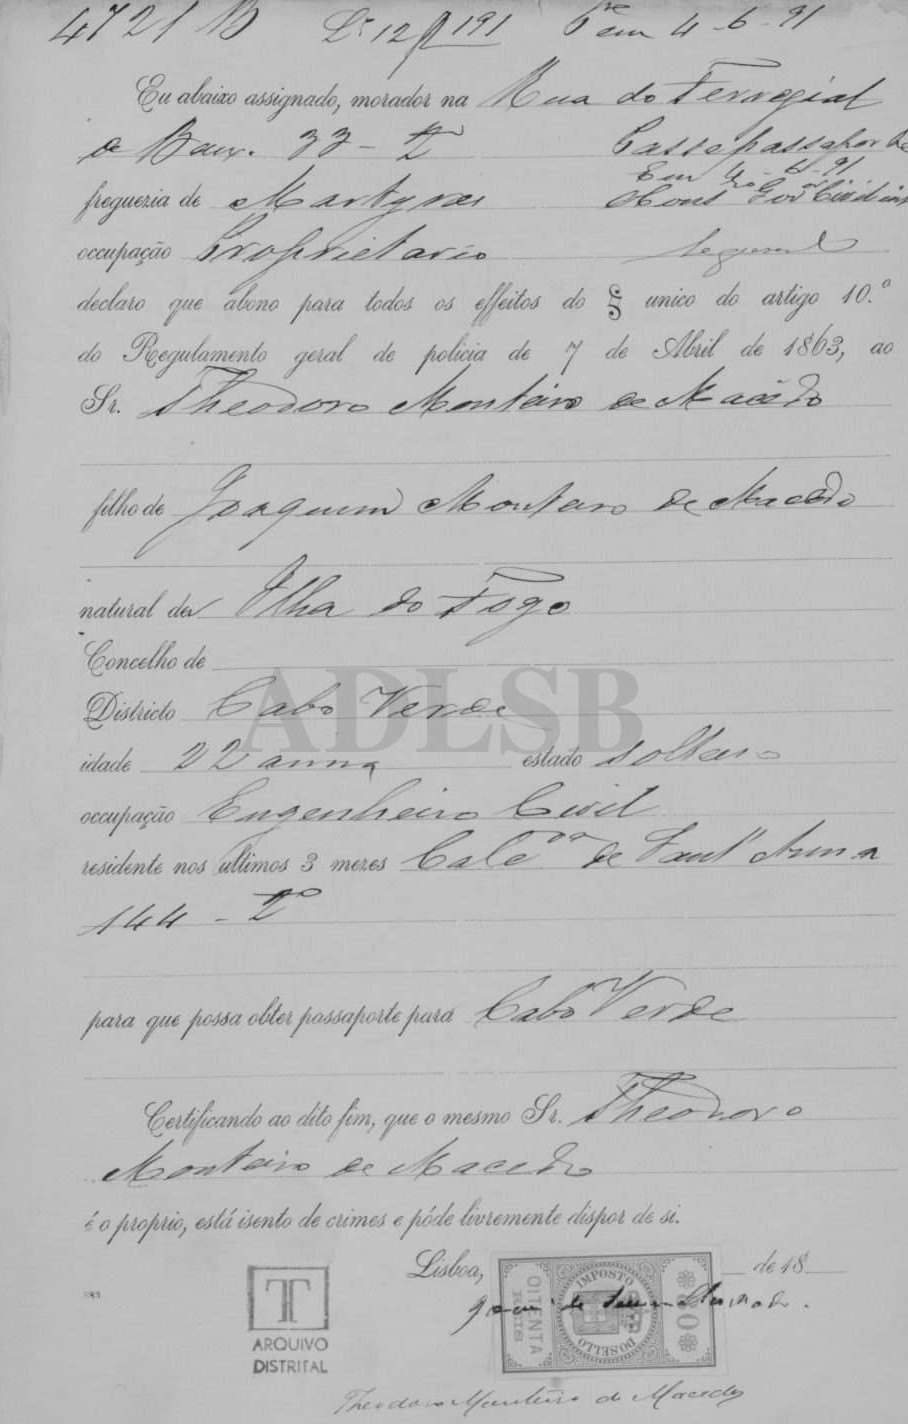 4721 B L.º 12 fl 191 P.e em 4-6-91
Eu abaixo assignado, morador na Rua do Ferregial
de Baix. 33 - 2º Passe passaporte
Em 4-6-91
freguezia de Martyres O Cons.ro Gov.or Civil
occupação Proprietario
declaro que abono para todos os effeitos do § unico do artigo 10.º
do Regulamento geral de policia de 7 de Abril de 1863, ao
Sr. Theodoro Monteiro de Macêdo
filho de Joaquim Monteiro de Macedo
natural da Ilha do Fogo
Concelho de
Districto Cabo Verde
idade 22 annos estado solteiro
occupação Engenheiro Civil
residente nos ultimos 3 mezes Calç.da de Sant'Anna
144 - 2º
para que possa obter passaporte para Cabo Verde
Certificando ao dito fim, que o mesmo Sr. Theodoro
Monteiro de Macedo
é o proprio, está isento de crimes e póde livremente dispor de si.
Lisboa, de 18
IMPOSTO DO SELLO
OITENTA REIS
80
T
ARQUIVO
DISTRITAL
Theodoro Monteiro de Macedo
ADLSB